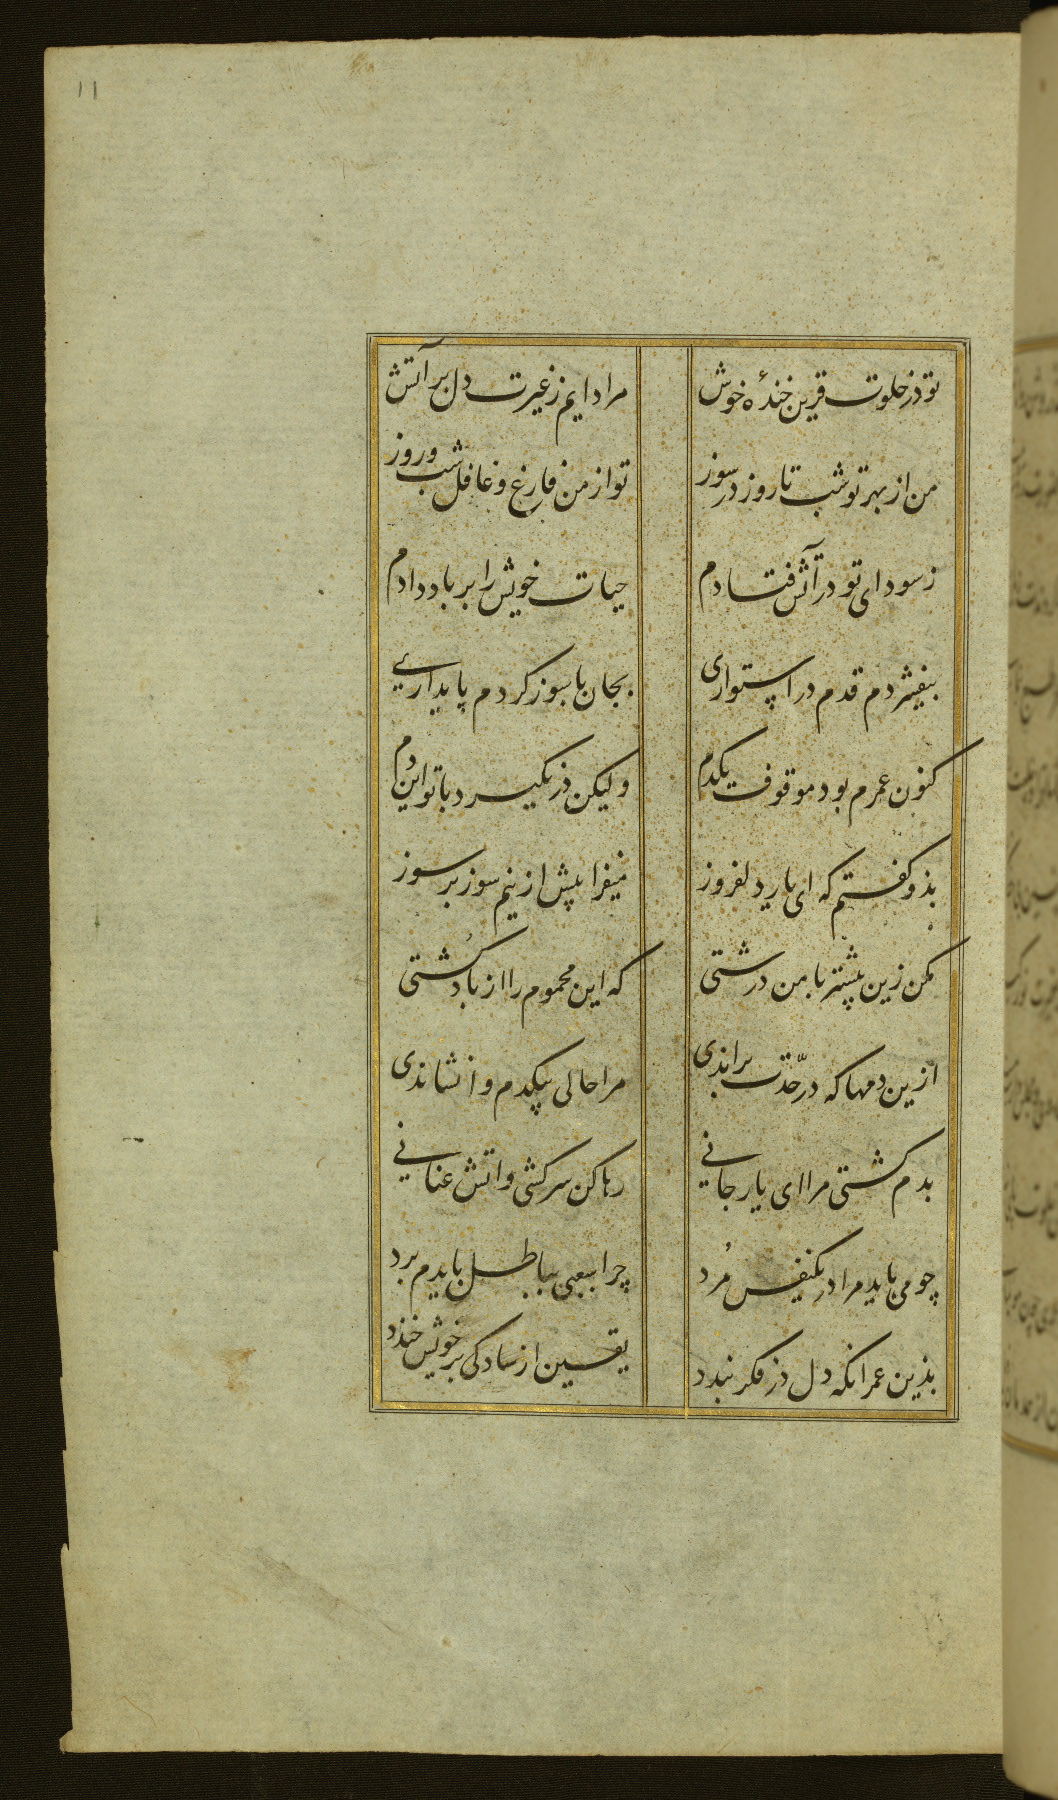 11
تو در خلوت قرین خندهٔ خوش
مرا دایم ز غیرت دل بر آتش
من از بهر تو شب تا روز در سوز
تو از من فارغ و غافل شب و روز
ز سودای تو در آتش فتادم
حیات خویش را بر باد دادم
بیفشردم قدم در استواری
بجان با سوز کردم پایداری
کنون عمرم بود موقوف یکدم
ولیکن در نگیرد با تو این دم
بدو گفتم که ای یار دلفروز
میفزا بیش ازینم سوز بر سوز
مکن زین بیشتر با من درشتی
که این محموم را از باد کشتی
ازین دمها که در حدّت براندی
مرا حالی بیکدم وانشاندی
بدم کشتی مرا ای یار جانی
رها کن سرکشی و آتش عنانی
چو می باید مرا در یکنفس مُرد
چرا سعیی بباطل بایدم برد
بدین عمر آنکه دل در فکر بندد
یقین از سادگی بر خویش خندد